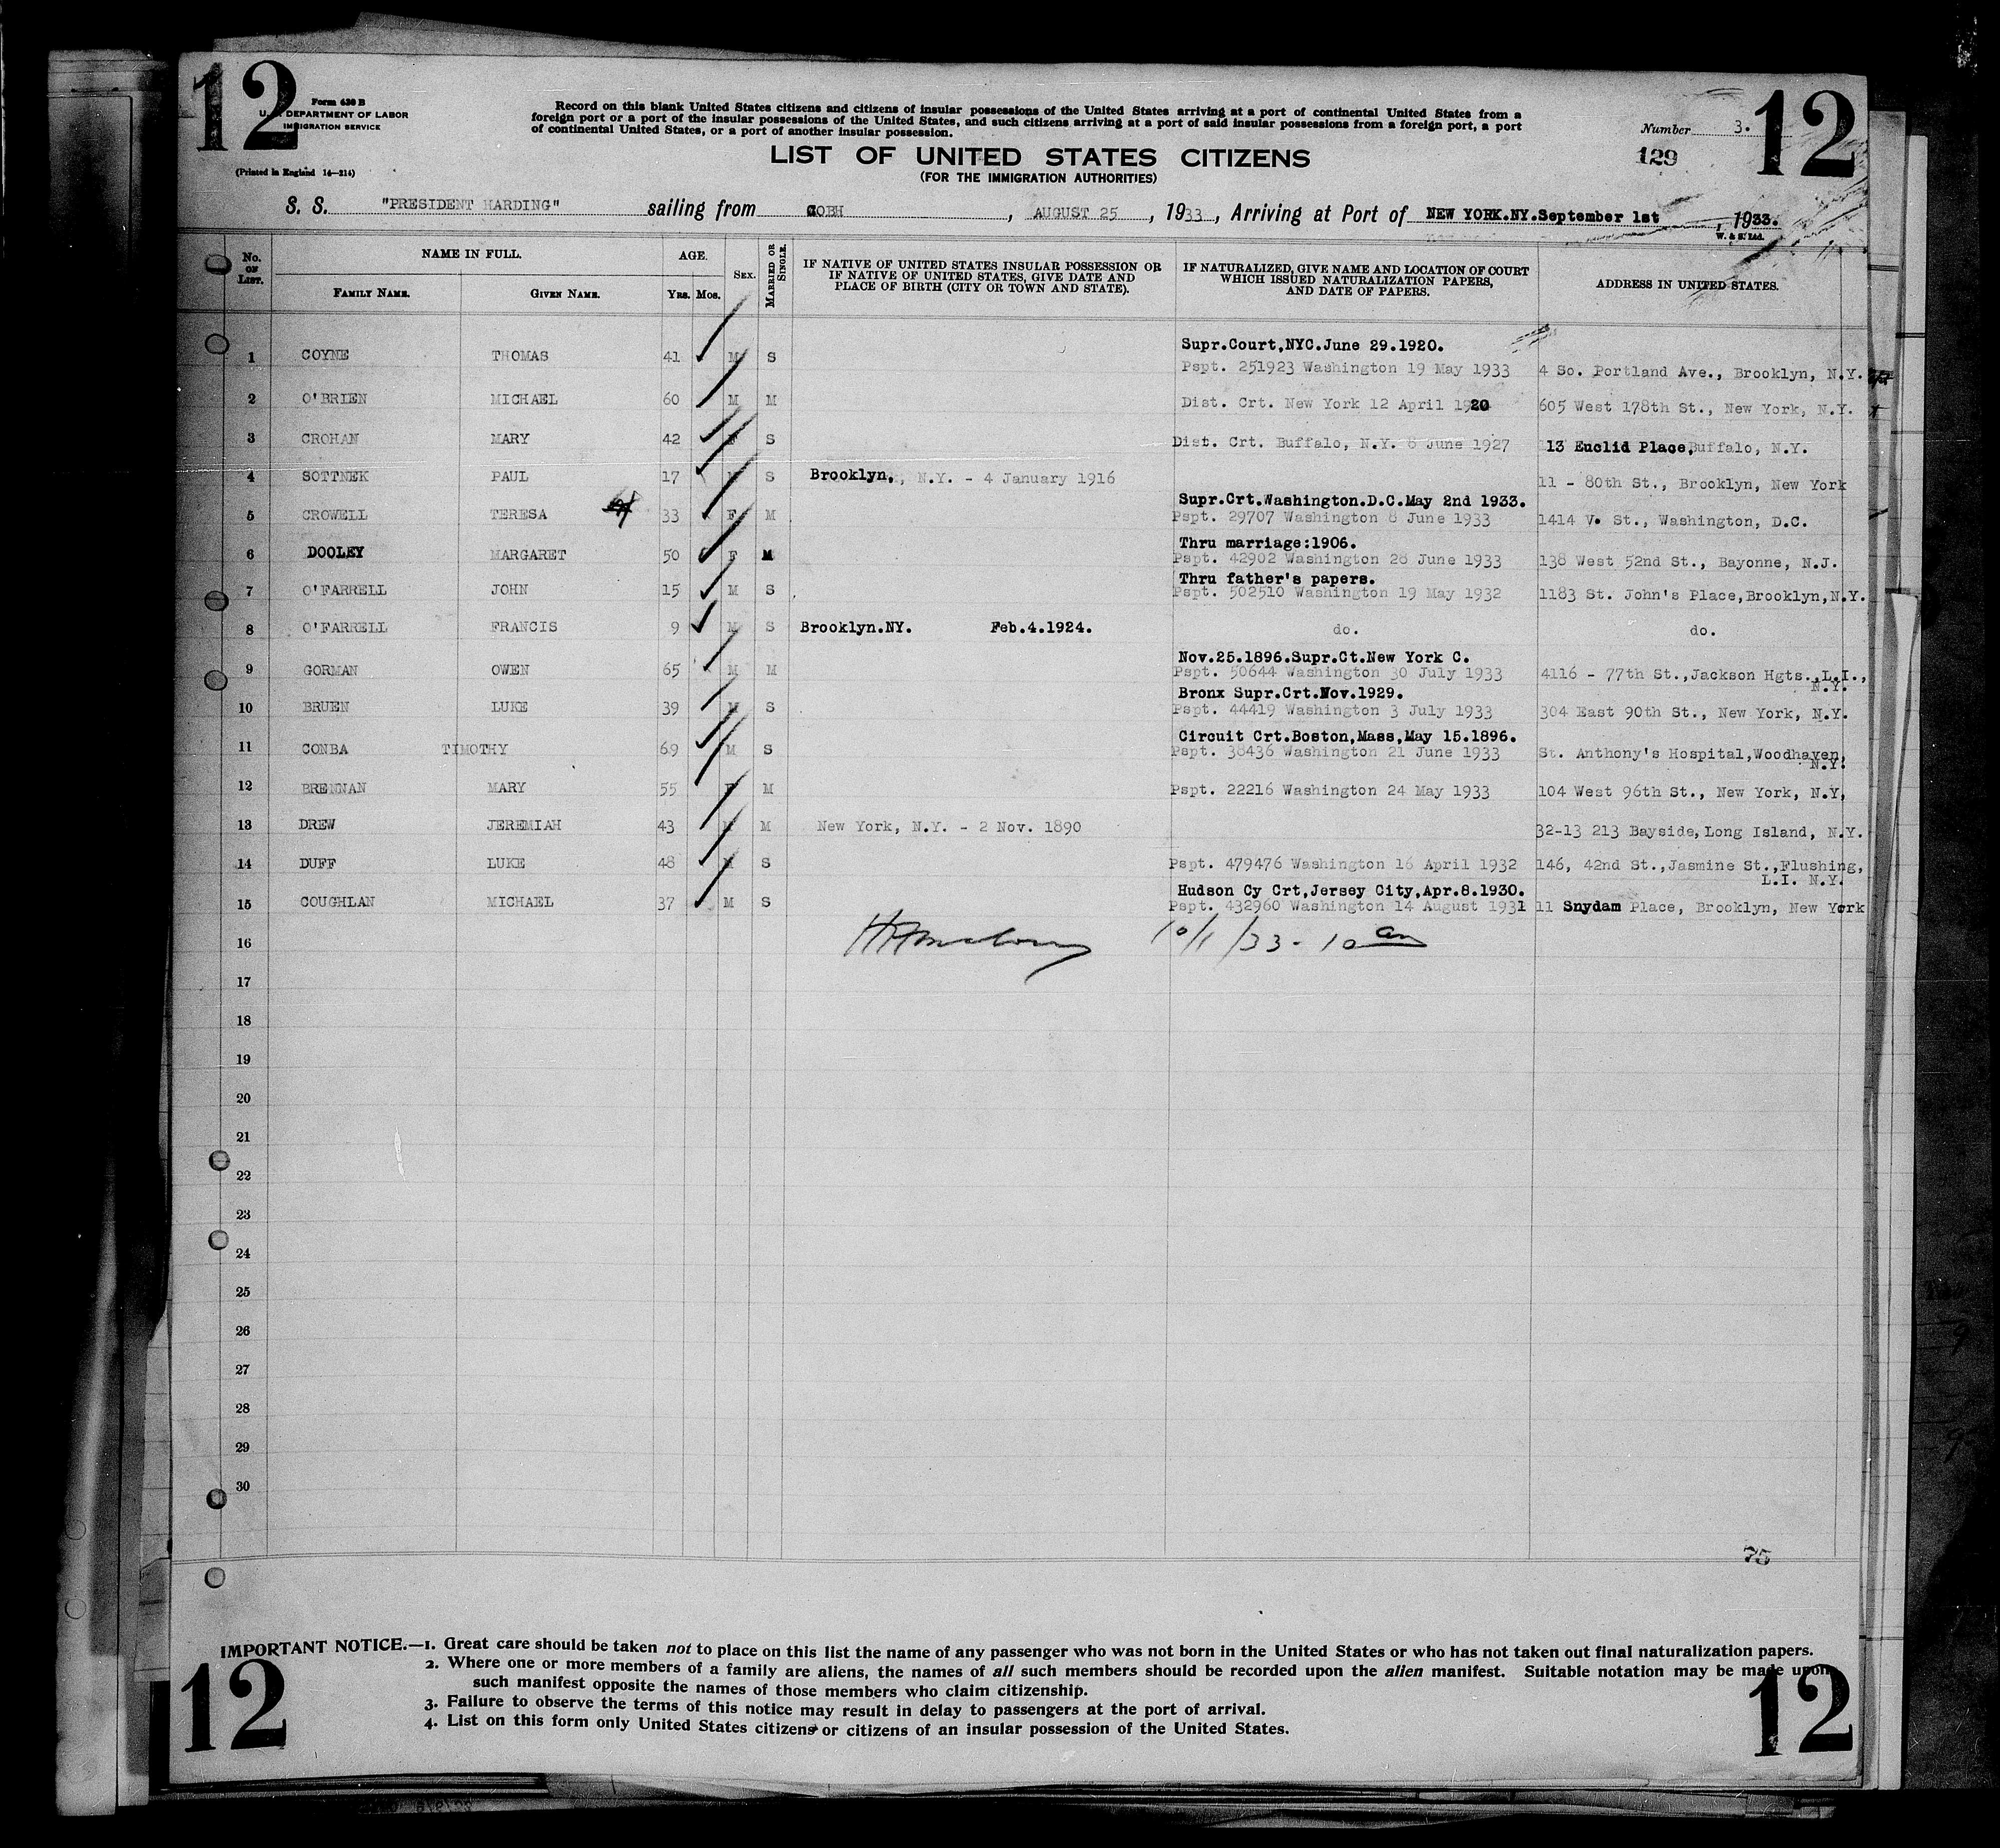 12
12
Form 630 B
U. S. DEPARTMENT OF LABOR
IMMIGRATION SERVICE
(Printed in England 14—214)
Record on this blank United States citizens and citizens of insular possessions of the United States arriving at a port of continental United States from a
foreign port or a port of the insular possessions of the United States, and such citizens arriving at a port of said insular possessions from a foreign port, a port
of continental United States, or a port of another insular possession.
Number 3.
129
LIST OF UNITED STATES CITIZENS
(FOR THE IMMIGRATION AUTHORITIES)
S. S. "PRESIDENT HARDING" sailing from COBH, AUGUST 25, 1933, Arriving at Port of NEW YORK.NY.September 1st, 1933.
W. & S. Ltd.
No. ON LIST. NAME IN FULL. AGE. SEX. MARRIED OR SINGLE. IF NATIVE OF UNITED STATES INSULAR POSSESSION OR IF NATIVE OF UNITED STATES, GIVE DATE AND PLACE OF BIRTH (CITY OR TOWN AND STATE). IF NATURALIZED, GIVE NAME AND LOCATION OF COURT WHICH ISSUED NATURALIZATION PAPERS, AND DATE OF PAPERS. ADDRESS IN UNITED STATES.
FAMILY NAME. GIVEN NAME. Yrs. Mos.
Supr.Court,NYC.June 29.1920.
1 COYNE THOMAS 41 M S Pspt. 251923 Washington 19 May 1933 4 So. Portland Ave., Brooklyn, N.Y.
2 O'BRIEN MICHAEL 60 M M Dist. Crt. New York 12 April 1920 605 West 178th St., New York, N.Y.
3 CROHAN MARY 42 F S Dist. Crt. Buffalo, N.Y. 6 June 1927 13 Euclid Place,Buffalo, N.Y.
4 SOTTNEK PAUL 17 M S Brooklyn, N.Y. - 4 January 1916 11 - 80th St., Brooklyn, New York
Supr.Crt.Washington.D.C.May 2nd 1933.
5 CROWELL TERESA 33 F M Pspt. 29707 Washington 8 June 1933 1414 V. St., Washington, D.C.
Thru marriage:1906.
6 DOOLEY MARGARET 50 F M Pspt. 42902 Washington 28 June 1933 138 West 52nd St., Bayonne, N.J.
Thru father's papers.
7 O'FARRELL JOHN 15 M S Pspt. 502510 Washington 19 May 1932 1183 St. John's Place,Brooklyn,N.Y.
8 O'FARRELL FRANCIS 9 M S Brooklyn.NY. Feb.4.1924. do. do.
Nov.25.1896.Supr.Ct.New York C.
9 GORMAN OWEN 65 M M Pspt. 50644 Washington 30 July 1933 4116 - 77th St.,Jackson Hgts.,L.I.,
N.Y.
Bronx Supr.Crt.Nov.1929.
10 BRUEN LUKE 39 M S Pspt. 44419 Washington 3 July 1933 304 East 90th St., New York, N.Y.
Circuit Crt.Boston,Mass,May 15.1896.
11 CONBA TIMOTHY 69 M S Pspt. 38436 Washington 21 June 1933 St. Anthony's Hospital,Woodhaven,
N.Y.
12 BRENNAN MARY 55 F M Pspt. 22216 Washington 24 May 1933 104 West 96th St., New York, N.Y,
13 DREW JEREMIAH 43 M M New York, N.Y. - 2 Nov. 1890 32-13 213 Bayside,Long Island, N.Y.
14 DUFF LUKE 48 M S Pspt. 479476 Washington 16 April 1932 146, 42nd St.,Jasmine St.,Flushing,
L.I. N.Y.
Hudson Cy Crt,Jersey City,Apr.8.1930.
15 COUGHLAN MICHAEL 37 M S Pspt. 432960 Washington 14 August 1931 11 Snydam Place, Brooklyn, New York
10/1/33 - 10 am
16
17
18
19
20
21
22
23
24
25
26
27
28
29
30
75
IMPORTANT NOTICE.—1. Great care should be taken not to place on this list the name of any passenger who was not born in the United States or who has not taken out final naturalization papers.
2. Where one or more members of a family are aliens, the names of all such members should be recorded upon the alien manifest. Suitable notation may be made upon
such manifest opposite the names of those members who claim citizenship.
3. Failure to observe the terms of this notice may result in delay to passengers at the port of arrival.
4. List on this form only United States citizens or citizens of an insular possession of the United States.
12
12